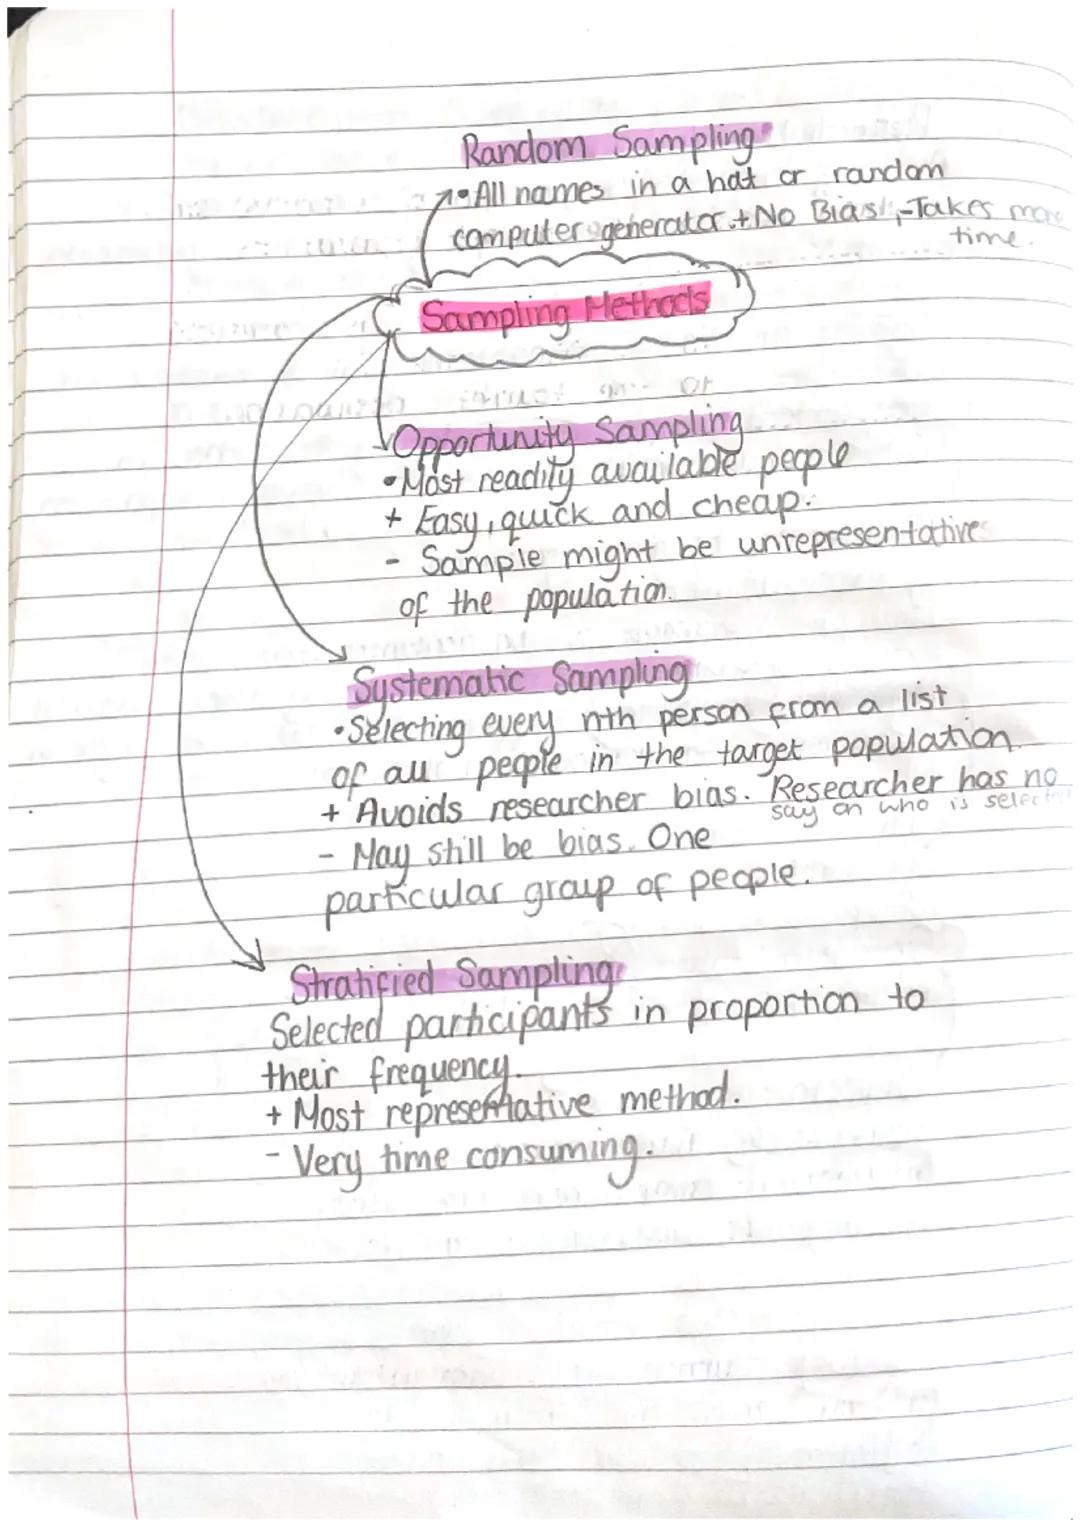 Random Sampling
• All names in a hat or random
computer generator. + No Bias, - Takes more
time.
Sampling Methods
Opportunity Sampling
• Most readily available people
+ Easy, quick and cheap.
- Sample might be unrepresentative
of the population.
Systematic Sampling
• Selecting every nth person from a list
of all people in the target population.
+ Avoids researcher bias. Researcher has no
say on who is selected
- May still be bias. One
particular group of people.
Stratified Sampling
Selected participants in proportion to
their frequency.
+ Most representative method.
- Very time consuming.